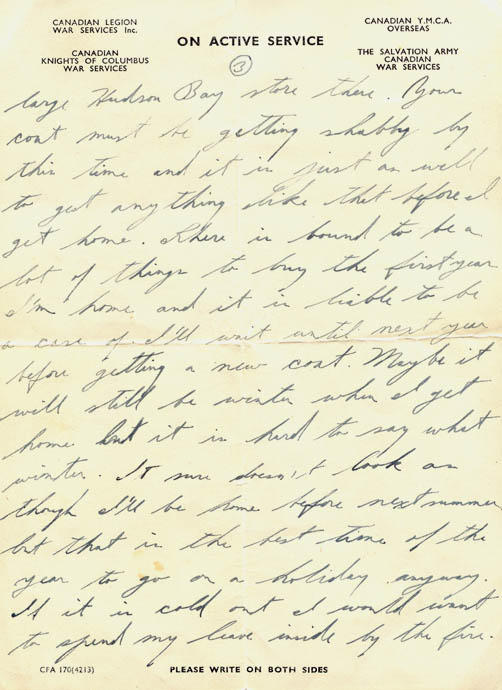 CANADIAN LEGION
WAR SERVICES Inc.
CANADIAN
KNIGHTS OF COLUMBUS
WAR SERVICES
ON ACTIVE SERVICE
CANADIAN Y.M.C.A.
OVERSEAS
THE SALVATION ARMY
CANADIAN
WAR SERVICES
3
large Hudson Bay store there. Your
coat must be getting shabby by
this time and it is just as well
to get anything like that before I
get home. There is bound to be a
lot of things to buy the first year
I'm home and it is liable to be
a case of I'll wait until next year
before getting a new coat. Maybe it
will still be winter when I get
home but it is hard to say what
winter. It sure doesn't look as
though I'll be home before next summer
but that is the best time of the
year to go on a holiday anyway.
If it is cold out I would want
to spend my leave inside by the fire.
CFA 170(4213)
PLEASE WRITE ON BOTH SIDES